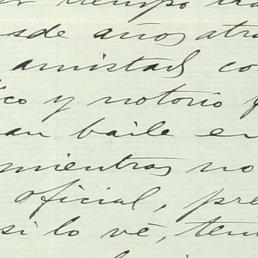 tiempo
sde años atra
amistad co
co y notorio f
an baile en
mientras no
oficial, pre
si lo vé, ten